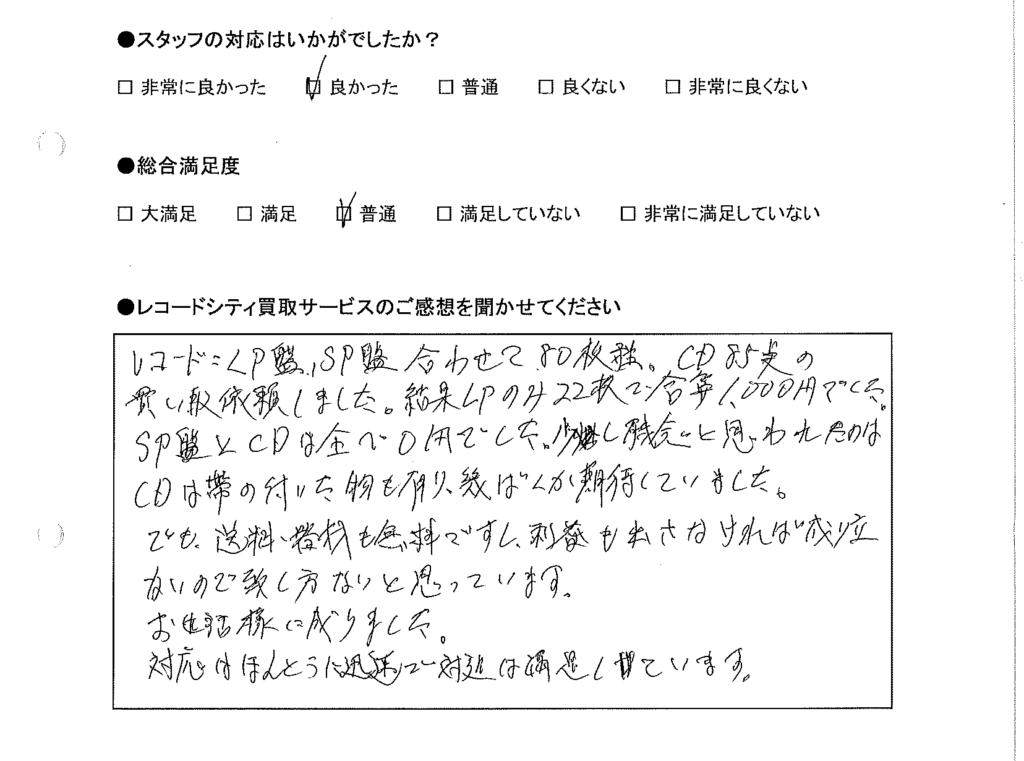 ●スタッフの対応はいかがでしたか？
□ 非常に良かった □ 良かった □ 普通 □ 良くない □ 非常に良くない
●総合満足度
□ 大満足 □ 満足 □ 普通 □ 満足していない □ 非常に満足していない
●レコードシティ買取サービスのご感想を聞かせてください
レコード：LP盤、SP盤 合わせて80枚強。CD 85枚の
買い取依頼しました。結果LPのみ22枚で合算1,000円でした。
SP盤とCDは全べ0円でした。少し残念と思われたのは
CDは帯の付いた物も有り、幾ばくか期待していました。
でも、送料・器材も無料ですし、利益も出さなければ成り立
ないので致し方ないと思っています。
お世話様に成りました。
対応はほんとうに迅速で対処は満足しています。